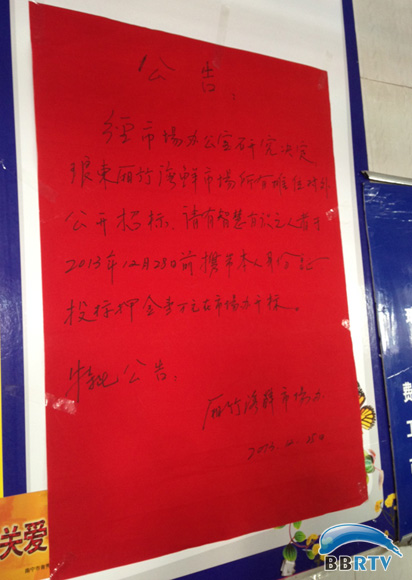 公告:
经市场办公室研究决定
琅东丽竹海鲜市场所有摊位对外
公开招标、请有智慧有之人
2013年12月28日前携带本人身份证
投标押金 万元在市场办开标。
特此公告:
丽竹海鲜市场办
2013.
关爱
BBRTV